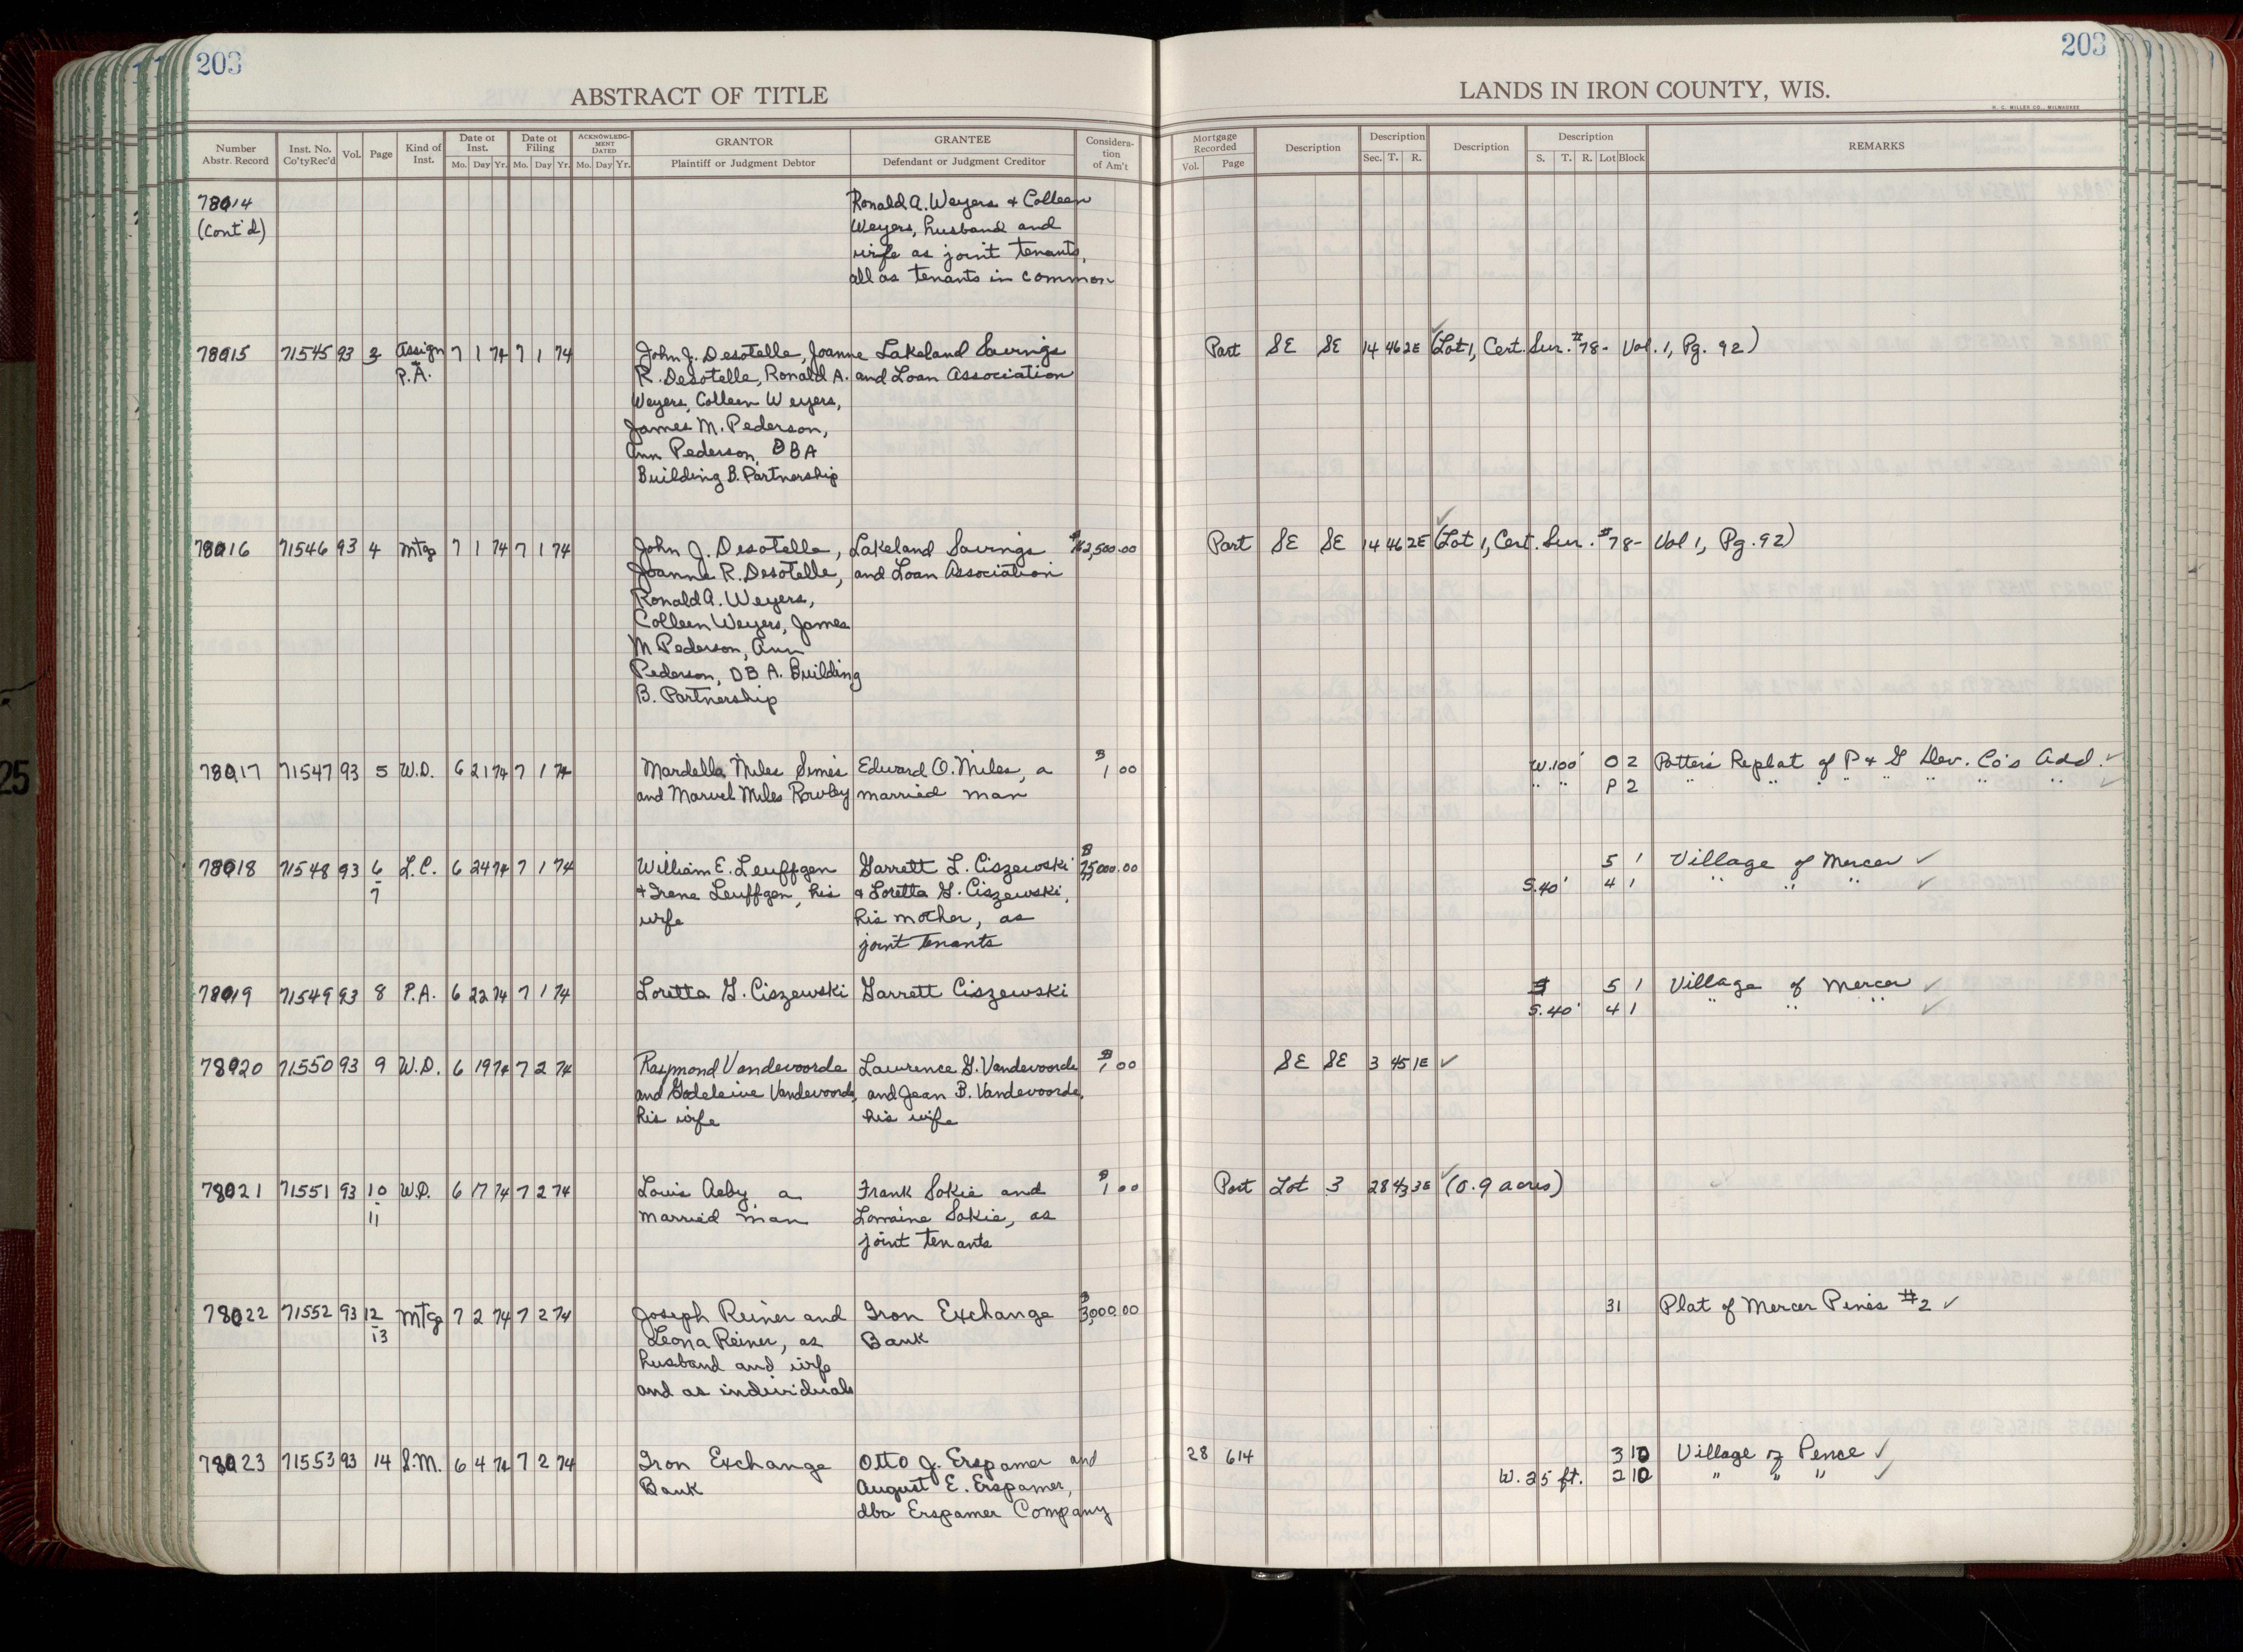 203
203
ABSTRACT OF TITLE
LANDS IN IRON COUNTY, WIS.
H. C. MILLER CO., MILWAUKEE
Number Abstr. Record | Inst. No. Co'tyRec'd | Vol. | Page | Kind of Inst. | Date of Inst. Mo. Day Yr. | Date of Filing Mo. Day Yr. | ACKNOWLEDGMENT DATED Mo. Day Yr. | GRANTOR Plaintiff or Judgment Debtor | GRANTEE Defendant or Judgment Creditor | Consideration of Am't | Mortgage Recorded Vol. Page | Description | Description Sec. T. R. | Description | Description S. T. R. Lot Block | REMARKS
78014 Ronald A. Weyers + Colleen
(Cont'd) Weyers, husband and
wife as joint tenants,
all as tenants in common
78015 71545 93 3 Assign 7 1 74 7 1 74 John J. Desotelle, Joanne Lakeland Savings Part SE SE 14 46 2E (Lot 1, Cert. Sur. #78 - Vol. 1, Pg. 92)
P.A. R. Desotelle, Ronald A. and Loan Association
Weyers, Colleen Weyers,
James M. Pederson,
Ann Pederson, DBA
Building B. Partnership
78016 71546 93 4 Mtg 7 1 74 7 1 74 John J. Desotelle, Lakeland Savings Part SE SE 14 46 2E (Lot 1, Cert. Sur. #78 - Vol 1, Pg. 92)
Joanne R. Desotelle, and Loan Association
Ronald A. Weyers,
Colleen Weyers, James
M Pederson, Ann
Pederson, DBA. Building
B. Partnership
78017 71547 93 5 W.D. 6 21 74 7 1 74 Mardella Miles Simes Edward O. Miles, a $1.00 W. 100' O 2 Potter's Replat of P & G Dev. Co's Add. ✓
and Marvel Miles Rowley married man " " P 2 " " " " " " " " ✓
78018 71548 93 6 L.C. 6 24 74 7 1 74 William E. Leuffgen Garrett L. Ciszewski $25,000.00 5 1 Village of Mercer ✓
7 + Irene Leuffgen, his & Loretta G. Ciszewski, S. 40' 4 1 " " " ✓
wife his mother, as
joint tenants
78019 71549 93 8 P.A. 6 22 74 7 1 74 Loretta G. Ciszewski Garrett Ciszewski 5 1 Village of Mercer ✓
S. 40' 4 1 " " " ✓
78020 71550 93 9 W.D. 6 19 74 7 2 74 Raymond Vandevoorde Lawrence G. Vandevoorde $1.00 SE SE 3 45 1E ✓
and Godeleive Vandevoorde, and Jean B. Vandevoorde,
his wife his wife
78021 71551 93 10 W.D. 6 17 74 7 2 74 Louis Aeby a Frank Sokie and $1.00 Part Lot 3 28 43 3E ✓ (0.9 acres)
11 married man Lorraine Sokie, as
joint tenants
78022 71552 93 12 Mtg 7 2 74 7 2 74 Joseph Reiner and Iron Exchange $3,000.00 31 Plat of Mercer Pines #2 ✓
13 Leona Reiner, as Bank
husband and wife
and as individuals
78023 71553 93 14 S.M. 6 4 74 7 2 74 Iron Exchange Otto J. Erspamer and 28 614 3 10 Village of Pence ✓
Bank August E. Erspamer, W. 25 ft. 2 10 " " " ✓
dba Erspamer Company
25